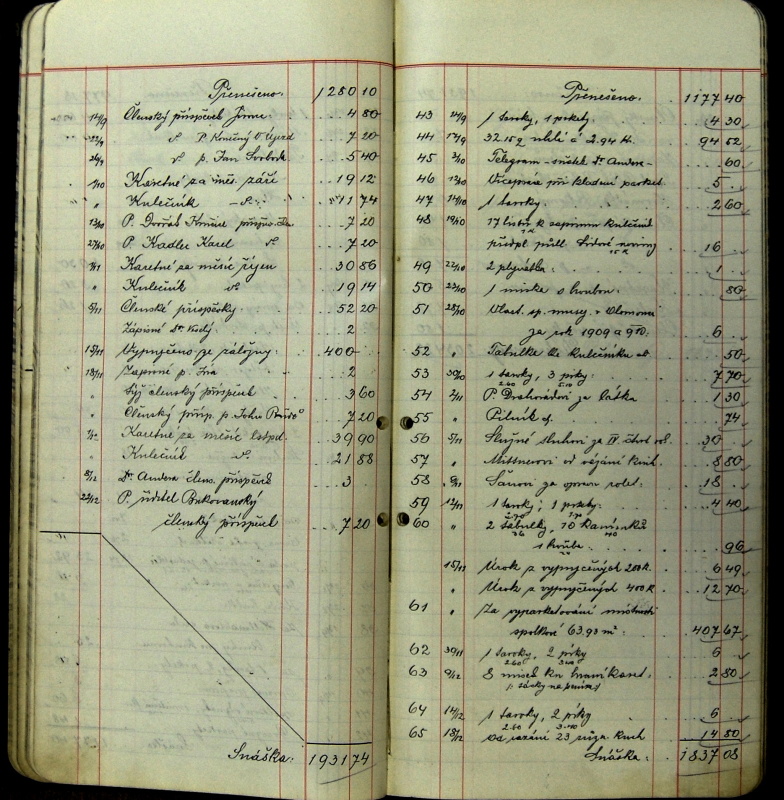 Přenešeno: 1280 10
14/9 Členský příspěvek 4 80
" 22/9 " P. Konečný V. Újezd 7 20
26/9 " p. Jan Svoboda 5 40
1/10 Karetné za měs. září 19 12
" Kulečník " 11 74
13/10 P. 7 20
27/10 P. Kadlec Karel 7 20
1/11 Karetné za měsíc říjen 30 86
" Kulečník 19 14
5/11 Členské příspěvky 52 20
Zápisné Dr 2
15/11 Vypůjčeno ze záložny 400
18/11 Zápisné p. 2
" Týž členský příspěvek 3 60
" Členský přísp. p. 7 20
1/12 Karetné za měsíc listopd. 39 90
" Kulečník 21 88
8/12 Dr. Andera člens. příspěvek 3
22/12 P. učitel Bukovanský
členský příspěvek 7 20
Snáška: 1931 74
Přenešeno: 1177 40
43 14/9 1 taroky, 1 pikety 4 30
44 17/9 32.15 q uhlí á 2.94 94 52
45 3/10 Telegram - sňatek Dr Andera - 60
46 12/10 Vícepráce při kladení parket 5
47 14/10 1 taroky 2 60
48 19/10 17 listů k kulečník
předpl půll. Lidové noviny 16
49 22/10 2 plyvátka 1
50 23/10 1 miska s houbou 80
51 28/10 Vlast. sp. musej. v Olomouci
za rok 1909 a 910 6
52 " Tabulka ke kulečníku 50
53 30/10 1 taroky, 3 pikety 7 70
54 2/11 P. za látku 1 30
55 " Pilník 74
56 5/11 Služné sluhovi za IV. čtvrt 30
57 " od vázání knih 8 80
58 za opravu rolet 18
59 12/11 1 taroky, 1 pikety 4 40
60 " 2 tabulky, 10 kamínků
1 houba 96
15/11 Úrok z vypůjčených 200 K 6 49
" Úrok z vypůjčených 400 K 12 70
61 " Za vyparketování místnosti
spolkové 63.93 m² 407 67
62 30/11 1 taroky, 2 pikety 6
63 9/12 8 misek ku hraní karet
2 80
64 14/12 1 taroky, 2 pikety 6
65 18/12 Od vázání 23 knih 14 80
Snáška: 1837 08